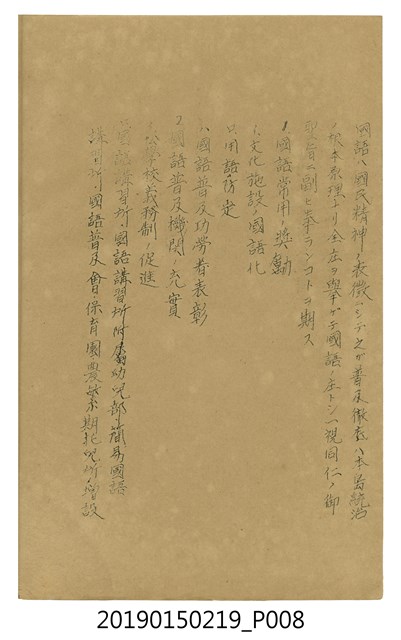 國語ハ國民精神ノ表徴ニシテ之ガ普及徹底ハ本島統治
ノ根本原理ナリ全庄ヲ擧ゲテ國語ノ庄トシ一視同仁ノ御
聖旨ニ副ヒ奉ランコトヲ期ス
イ、國語常用ノ奬勵
ロ、文化施設ノ國語化
ロ、用語ノ防定
ハ、國語普及功勞者表彰
2、國語普及機關ノ充實
イ、公學校義務制ノ促進
ロ、國語講習所、國語講習所附屬幼兒部、簡易國語
講習所、國語普及會、保育園、農繁期托兒所ノ増設
20190150219_P008